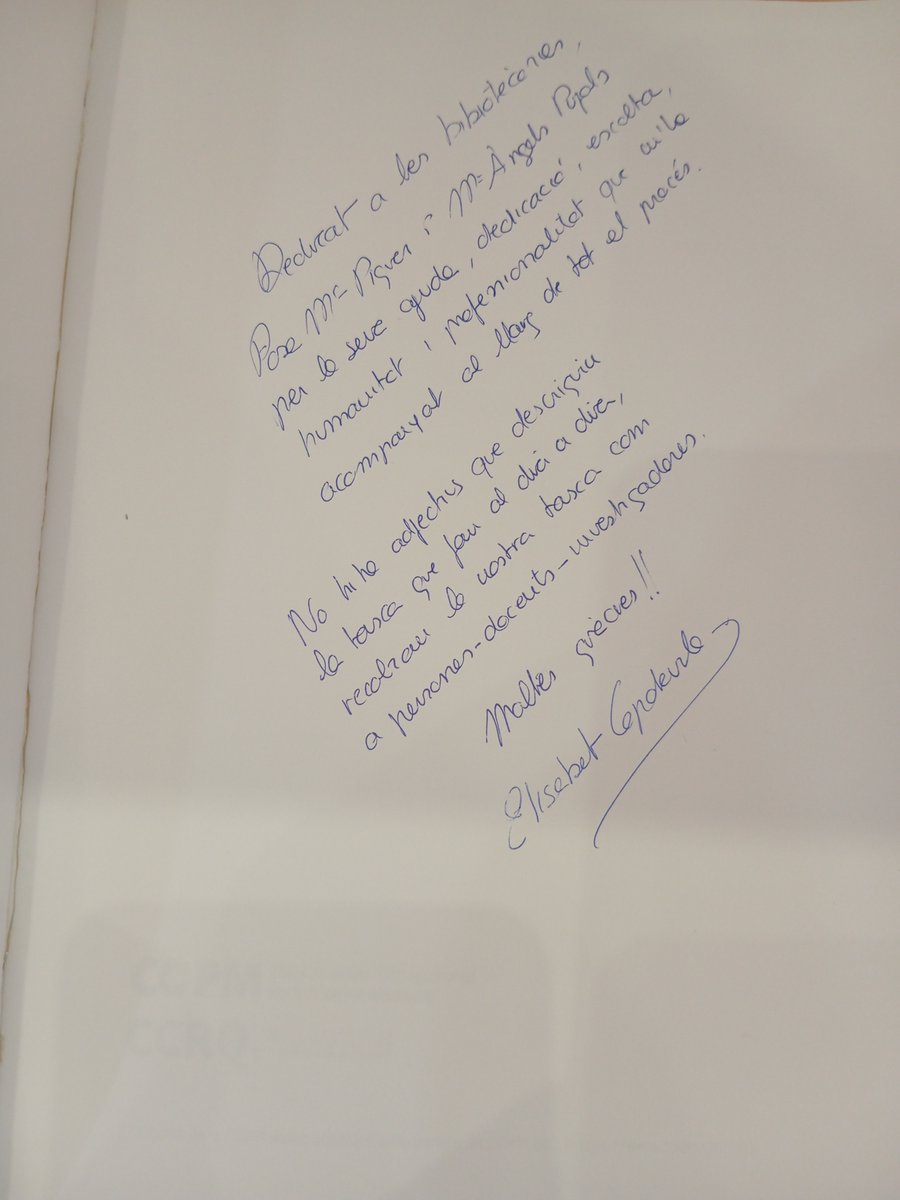 Dedicat a les bibliotecàries,
Rosa Mª Piquer i Mª Àngels Pujals
per la seva ajuda, dedicació, escolta,
humanitat i professionalitat que m'ha
acompanyat al llarg de tot el procés.
No hi ha adjectius que descriguin
la tasca que feu al dia a dia,
recolzau la nostra tasca com
a persones-docents-investigadores.
Moltes gràcies!!
Elisabet Capdevila
CGPM